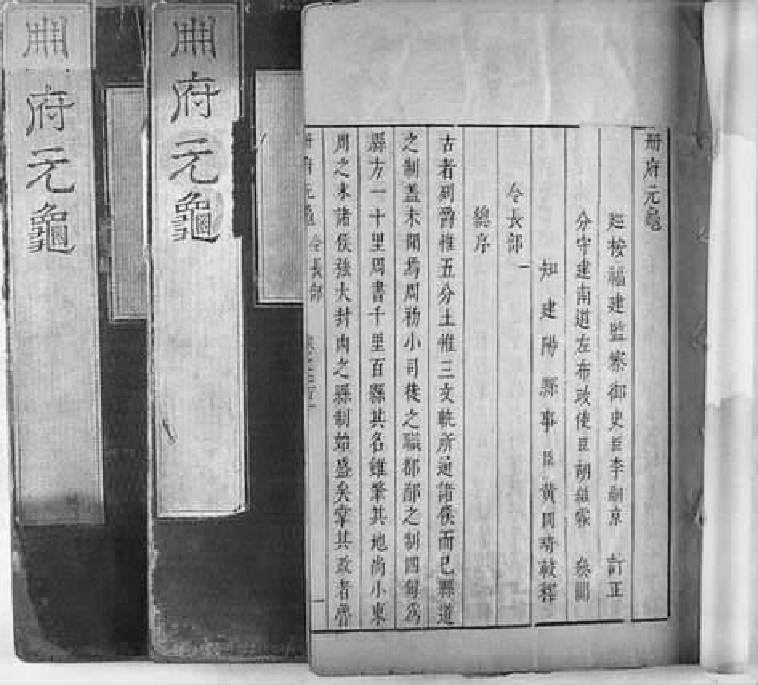 冊府元龜
巡按福建監察御史臣李嗣京 訂正
分守建南道左布政使臣胡維霖 叅閱
知建陽縣事臣黃國琦較釋
令長部一
總序
古者列爵惟五分土惟三文軌所通諸侯而已縣道
之制蓋未聞焉周初小司徒之職都鄙之制四甸爲
縣方一十里周書千里百縣其名雖肇其地尚小東
周之末諸侯強大封內之縣制始盛矣掌其政者魯
冊府元龜 令長部
冊府元龜
冊府元龜